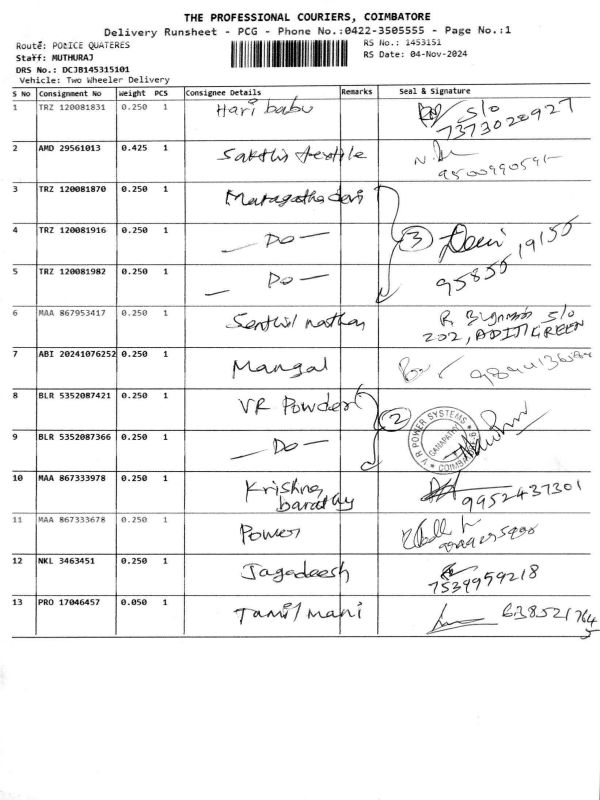 THE PROFESSIONAL COURIERS, COIMBATORE
Delivery Runsheet - PCG - Phone No.:0422-3505555 - Page No.:1
Route: POLICE QUATERES
RS No.: 1453151
Staff: MUTHURAJ
RS Date: 04-Nov-2024
DRS No.: DCJB145315101
Vehicle: Two Wheeler Delivery
S No Consignment No Weight PCS Consignee Details Remarks Seal & Signature
1 TRZ 120081831 0.250 1 Hari babu S/o
7373028927
2 AMD 29561013 0.425 1 Sakthis textile
9500990591-
3 TRZ 120081870 0.250 1 Maragatha devi
4 TRZ 120081916 0.250 1 — Do — 3 Devi
5 TRZ 120081982 0.250 1 — Do — 9585519150
6 MAA 867953417 0.250 1 Senthil nathan R S/o
202, ADITI GREEN
7 ABI 20241076252 0.250 1 Mangal
8 BLR 5352087421 0.250 1 VR Powder 2
V R POWER SYSTEMS
GANAPATHY
9 BLR 5352087366 0.250 1 — Do —
10 MAA 867333978 0.250 1 Krishna
barathy 9952437301
11 MAA 867333678 0.250 1 Power
12 NKL 3463451 0.250 1 Jagadeesh
7539959218
13 PRO 17046457 0.050 1 Tamil mani 638521764
5